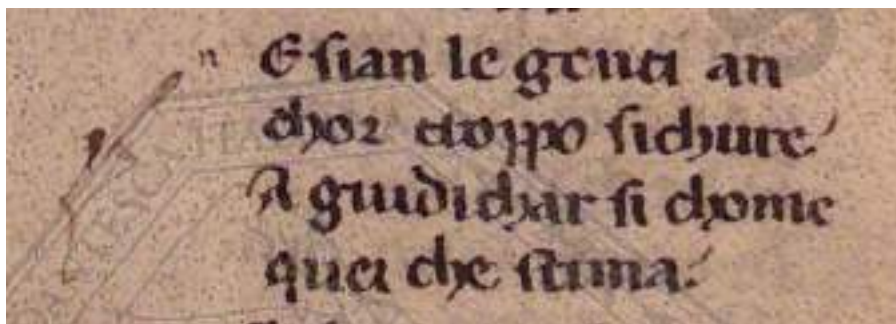 n E sian le genti an
chor troppo sichure
A giudichar si chome
quei che stima